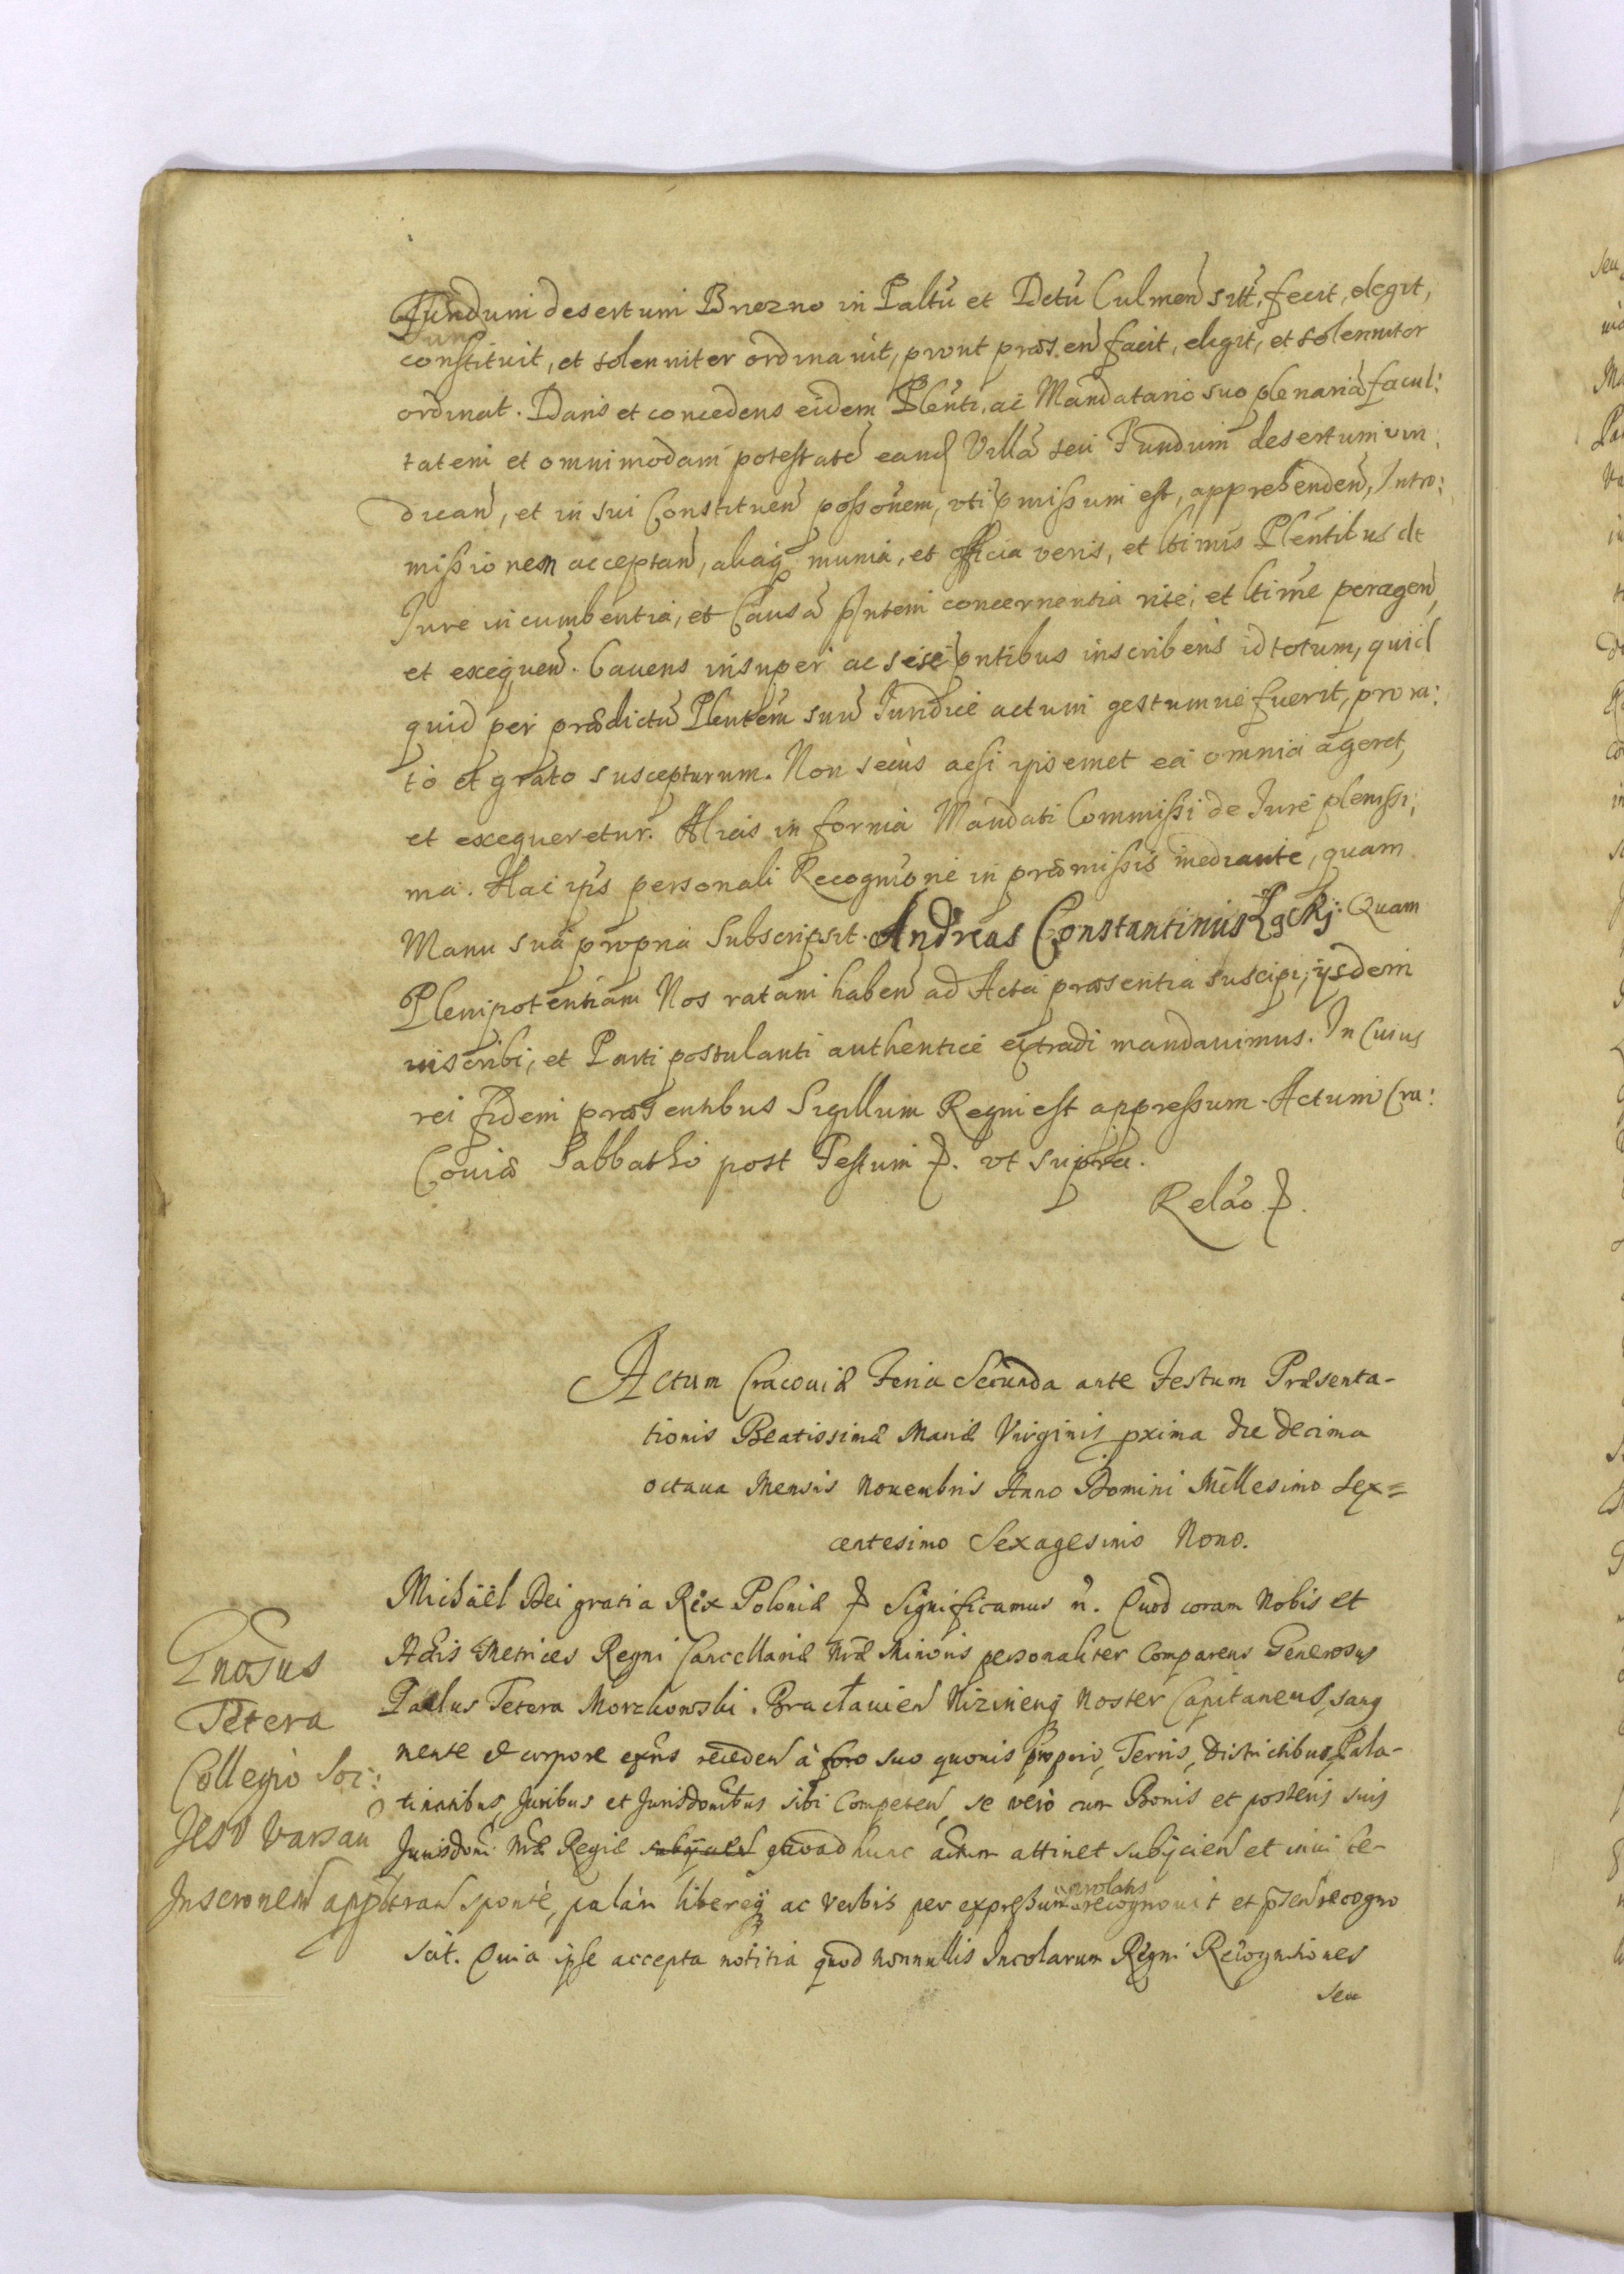 Fundum desertum Brezno in Paltũ et Dctũ Culmeñ sitt, fecit, elegit,
constituit, et solenniter ordinauit, prout præseñ facit, eligit, et solenniter
ordinat. Dans et concedens eidem Plenti, ac Mandatario suo plenariã facul:
tatem et omnimodam potestatẽ eand Villã seu Fundum desertum vin:
dicañ, et in sui Constitueñ possonem, vti pmissum est, apprehendeñ, Intro:
missionem acceptañ, aliaq munia, et officia veris, et ltimis Plentibus de
Jure incumbentia, et Causã pntem concernentia rite, et ltime perageñ,
et exequeñ. Cauens insuper ac sese pntibus inscribens id totum, quid
quid per prædictũ Plentem suũ Juridice actum gestumue fuerit, pro ra:
to et grato suscepturum. Non secus acsi ipsemet ea omnia ageret,
et exequeretur. Alias in forma Mandati Commissi de Jure plenissi:
ma. Hac ips personali Recognione in præmissis mediante, quam
Manu sua propria Subscripsit. Andreas Constantinus Łącki. Quam
Plenipotentiam Nos ratam habeñ ad Acta præsentia suscipi, ijsdem
inscribi, et Parti postulanti authentice extradi mandauimus. In Cuius
rei fidem præsentibus Sigillum Regni est appressum. Actum Cra:
Couiæ Sabbatho post Festum &. vt supra.
Relão &.
Actum Cracouiæ Feria Secunda ante Festum Præsenta-
tionis Beatissimæ Mariæ Virginis pxima die decima
octaua Mensis Nouembris Anno Domini Millesimo Sex=
centesimo Sexagesimo Nono.
Michaël Dei gratia Rex Poloniæ & Significamus &. Quod coram Nobis et
Actis Metrices Regni Cancellariæ nræ Minoris personaliter Comparens Generosus
Paulus Tetera Morzkowski. Bracłauieñ Nizineñq Noster Capitaneus, sanq
mente et corpore exñs recedeñ à foro suo quouis proprio, Terris, Districtibus, Pala-
tinatibus, Juribus et Jurisdonibus sibi Competeñ, se verò cum Bonis et posteris suis
Jurisdoni nræ Regiæ subijcieñ quoad hunc actum attinet subijcieñ et inui ce-
rans sponte, palàm libereq ac verbis per expressum prolatis recognouit et pseñ recogno
scit. Quia ipse accepta notitia quod nonnullis Incolarum Regni Recognitiones
seu
Gnosus
Tetera
Collegio Soc:
Jesv Varsau
Inscronem appt